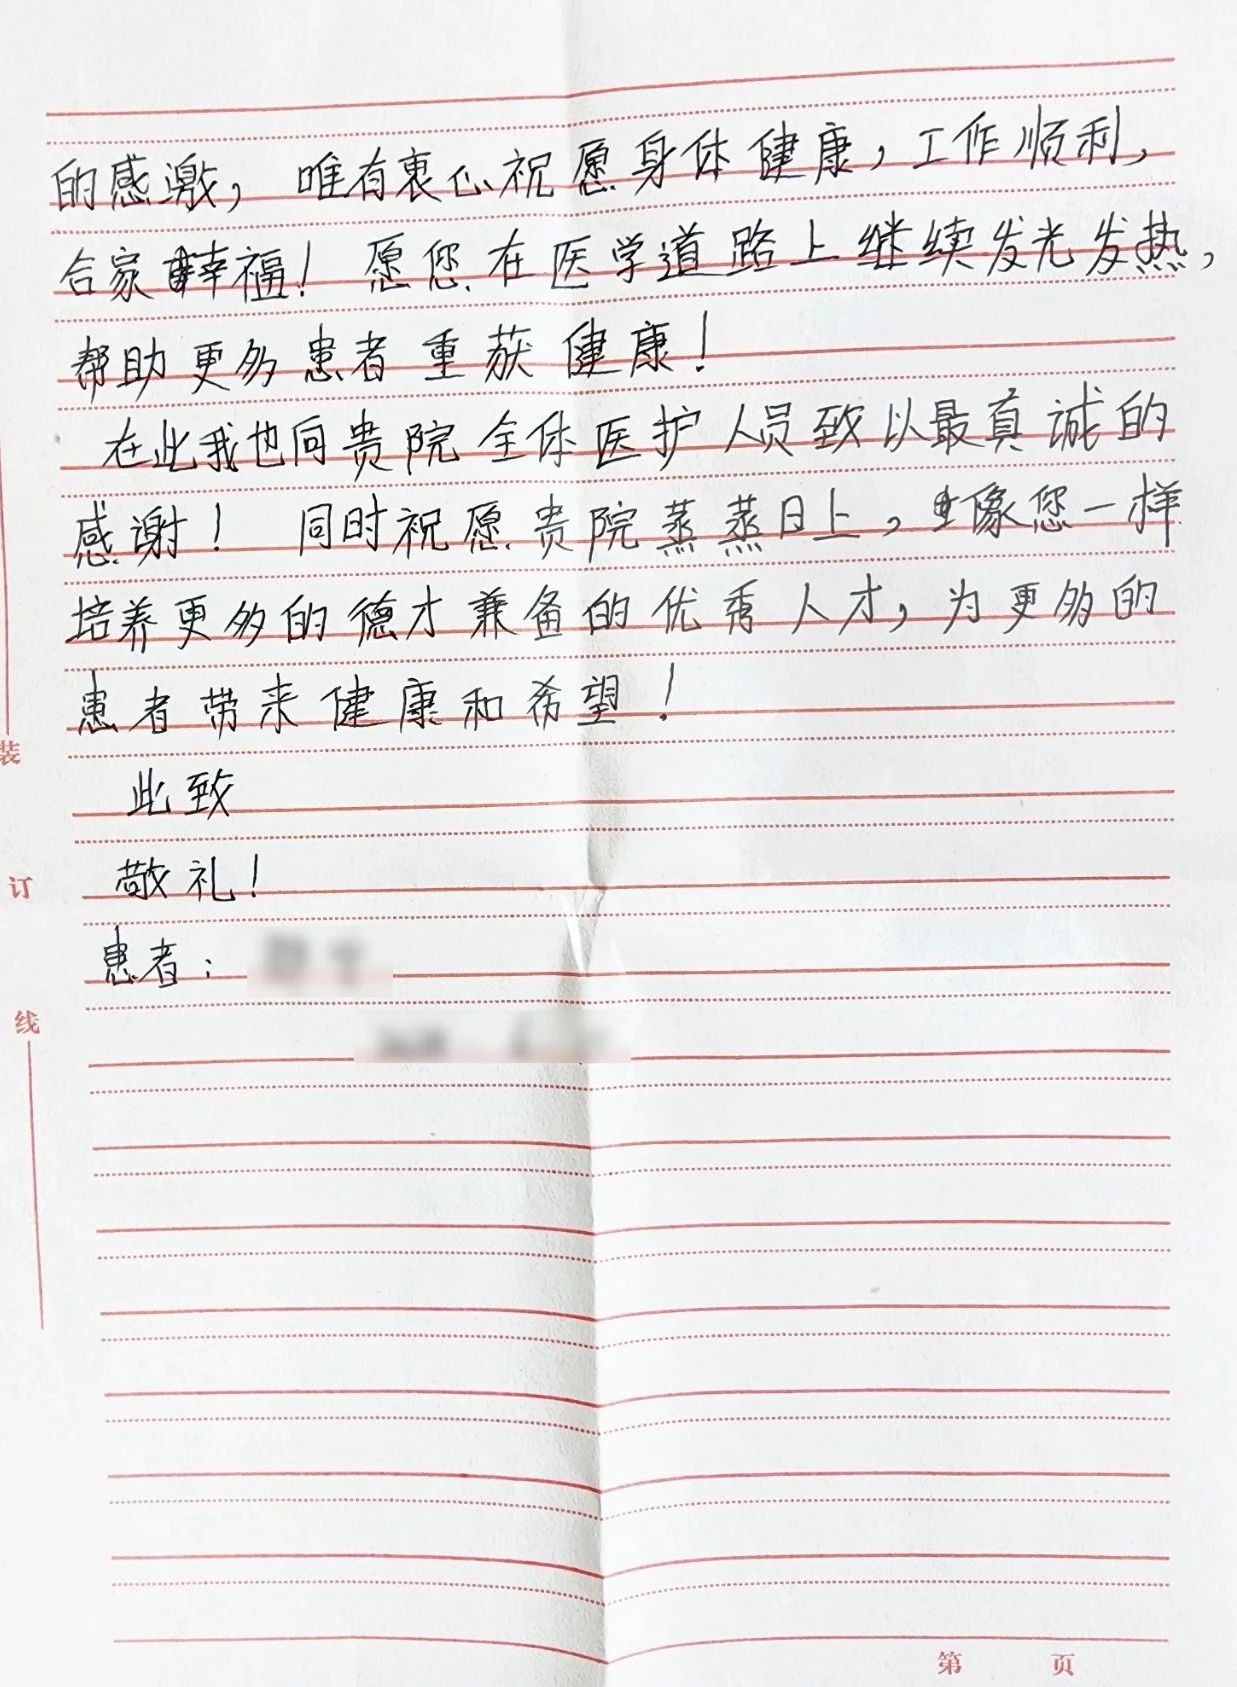 的感激，唯有衷心祝愿身体健康，工作顺利，
合家幸福！愿您在医学道路上继续发光发热，
帮助更多患者重获健康！
在此我也向贵院全体医护人员致以最真诚的
感谢！同时祝愿贵院蒸蒸日上，像您一样
培养更多的德才兼备的优秀人才，为更多的
患者带来健康和希望！
此致
敬礼！
患者：
装
订
线
第 页